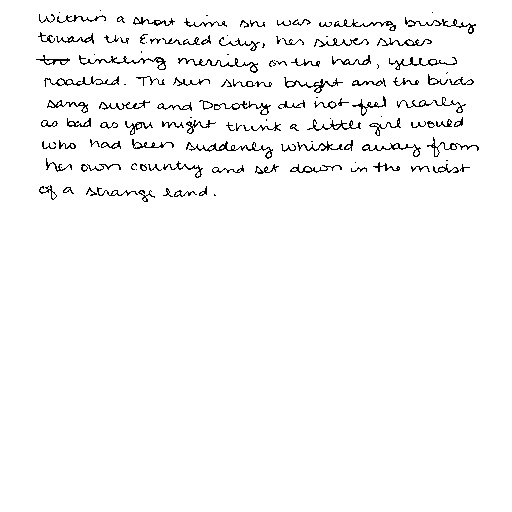 Within a short time she was walking briskly
toward the Emerald City, her silver shoes
tinkling merrily on the hard, yellow
roadbed. The sun shone bright and the birds
sang sweet and Dorothy did not feel nearly
as bad as you might think a little girl would
who had been suddenly whisked away from
her own country and set down in the midst
of a strange land.